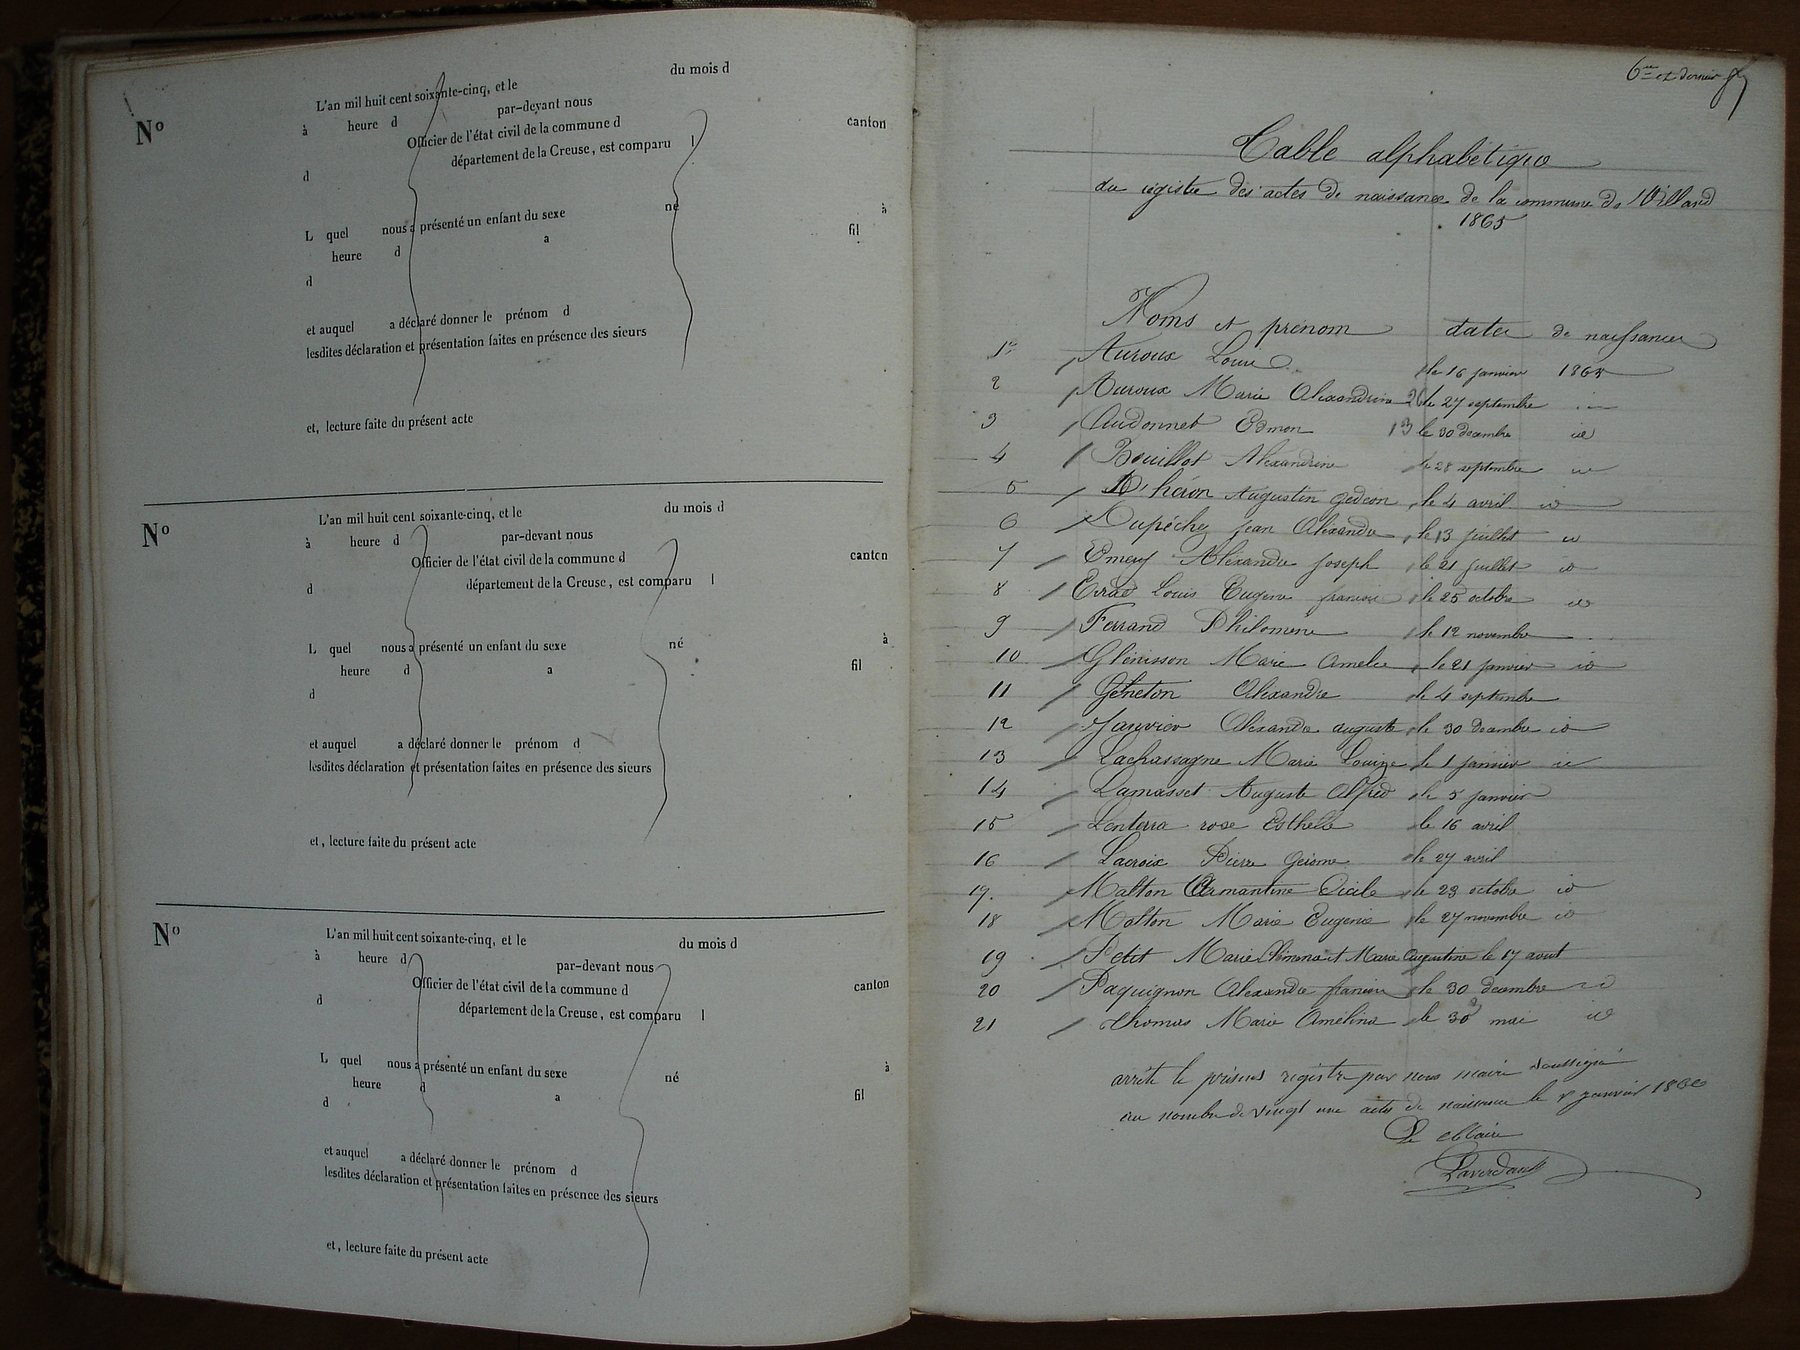 N°
L'an mil huit cent soixante-cinq, et le du mois d
à heure d par-devant nous
Officier de l'état civil de la commune d canton
d département de la Creuse, est comparu l
L quel nous a présenté un enfant du sexe né à
heure d a fil
d
et auquel a déclaré donner le prénom d
lesdites déclaration et présentation faites en présence des sieurs
et, lecture faite du présent acte
N°
L'an mil huit cent soixante-cinq, et le du mois d
à heure d par-devant nous
Officier de l'état civil de la commune d canton
d département de la Creuse, est comparu l
L quel nous a présenté un enfant du sexe né à
heure d a fil
d
et auquel a déclaré donner le prénom d
lesdites déclaration et présentation faites en présence des sieurs
et, lecture faite du présent acte
N°
L'an mil huit cent soixante-cinq, et le du mois d
à heure d par-devant nous
Officier de l'état civil de la commune d canton
d département de la Creuse, est comparu l
L quel nous a présenté un enfant du sexe né à
heure d a fil
d
et auquel a déclaré donner le prénom d
lesdites déclaration et présentation faites en présence des sieurs
et, lecture faite du présent acte
6me et dernier
Table alphabétique
du régistre des actes de naissance de la commune de Villard
1865
Noms et prénom date de naissance
1er Auroux Louise le 16 janvier 1865
2 Auroux Marie Alexandrine 26 le 27 septembre
3 Audonnet Edmon 13 le 30 decembre id
4 Bouillot Alexandrine le 28 septembre id
5 D'héron Augustin gedeon le 4 avril id
6 Dupéchez jean Alexandre le 13 juillet id
7 Emery Alexandre joseph le 21 juillet id
8 Errad Louis Eugene francois le 25 octobre id
9 Ferrand Philomene le 12 novembre
10 Glenisson Marie Amelie le 21 janvier id
11 Géneton Alexandre le 4 septembre
12 Janvier Alexandre auguste le 30 decembre id
13 Lachassagne Marie Louize le 1 janvier id
14 Lamasset Auguste Alfred le 5 janvier
15 Lenterra rose Esthelle le 16 avril
16 Lacroix Pierre Geiome le 27 avril
17. Malton Armantine Cicile le 23 octobre id
18 Malton Marie Eugenie le 27 novembre id
19 Petit Marie et Marie Augustine le 17 aout
20 Paquignon Alexandre francois le 30 decembre id
21 thomas Marie Amélina le 30 mai id
arrêté le présens registre par nous maire soussigné
au nombre de vingt une actes de naissance le 1er janvier 1866
Le Maire
Laverdant